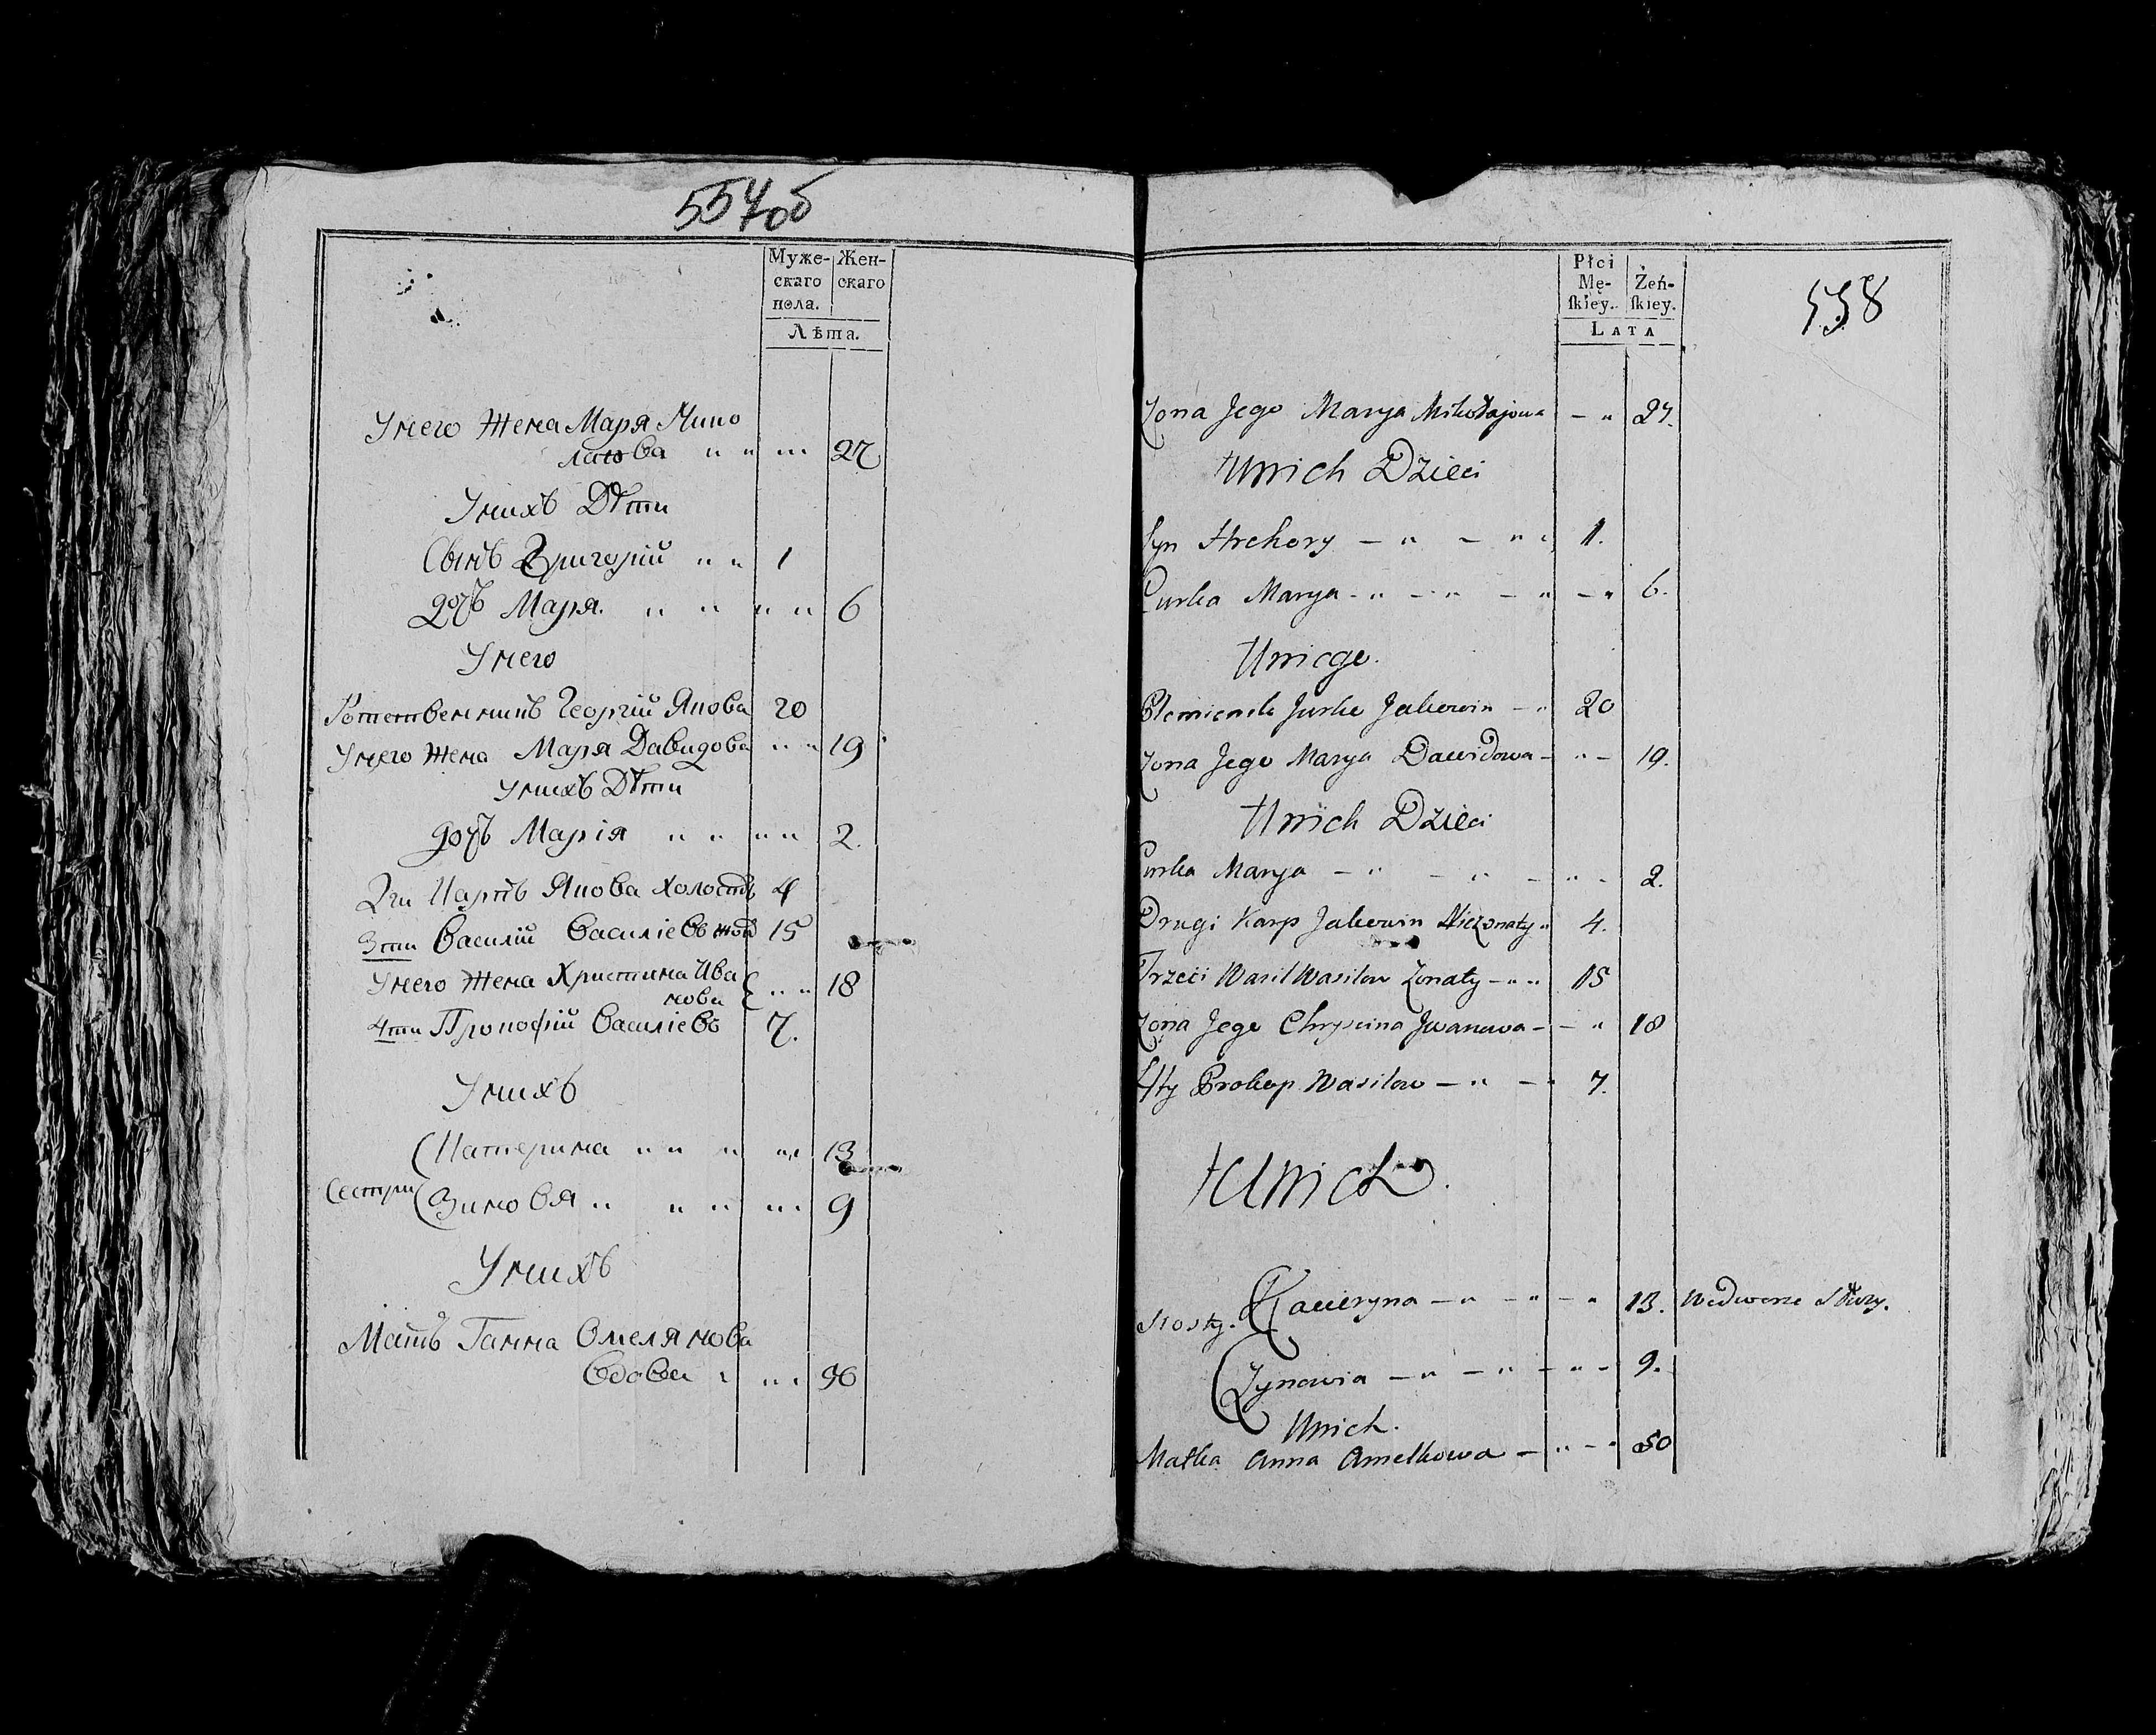 557об
Муже-
скаго
пола.
Жен-
скаго
Лѣта.
Унего Жена Маря Мико
лаюва 27
Унихъ Дѣти
Сынъ Григорій 1
дочъ Маря. 6
Унего
Георгій Якова 20
Унего Жена Маря Давидова 19
Унихъ Дѣти
дочъ Марія 2.
2ги Карпъ Якова холостъ 4
3ти Василій Василіевъ 15
Унего Жена Христина Ива
нова 18
4ти Прокофій Василіевъ 7.
Унихъ
Катерина 13
Сестри
Зиновя 9
Унихъ
Матъ Ганна Омелянова
Вдова
Płci
Mę-
skiey.
Żeń-
skiey.
LATA
558
Zona Jego Marya Mikołajowa 27.
Unich Dzieci
Syn Hrehory 1.
Curka Marya 6.
Uniego.
Jurko Jakowin 20
Zona Jego Marya Dawidowa 19.
Unich Dzieci
Curka Marya 2.
Drugi Karp Jakowin Niezonaty 4.
Trzeci Wasil Wasilow Zonaty 15
Zona Jego Chryscina Jwanowa 18
4ty Prokop Wasilow 7.
Unich.
Kacieryna 13. Wedworze Służy.
Siostry.
Zynowia 9.
Unich.
Matka Anna Amelkowa 50